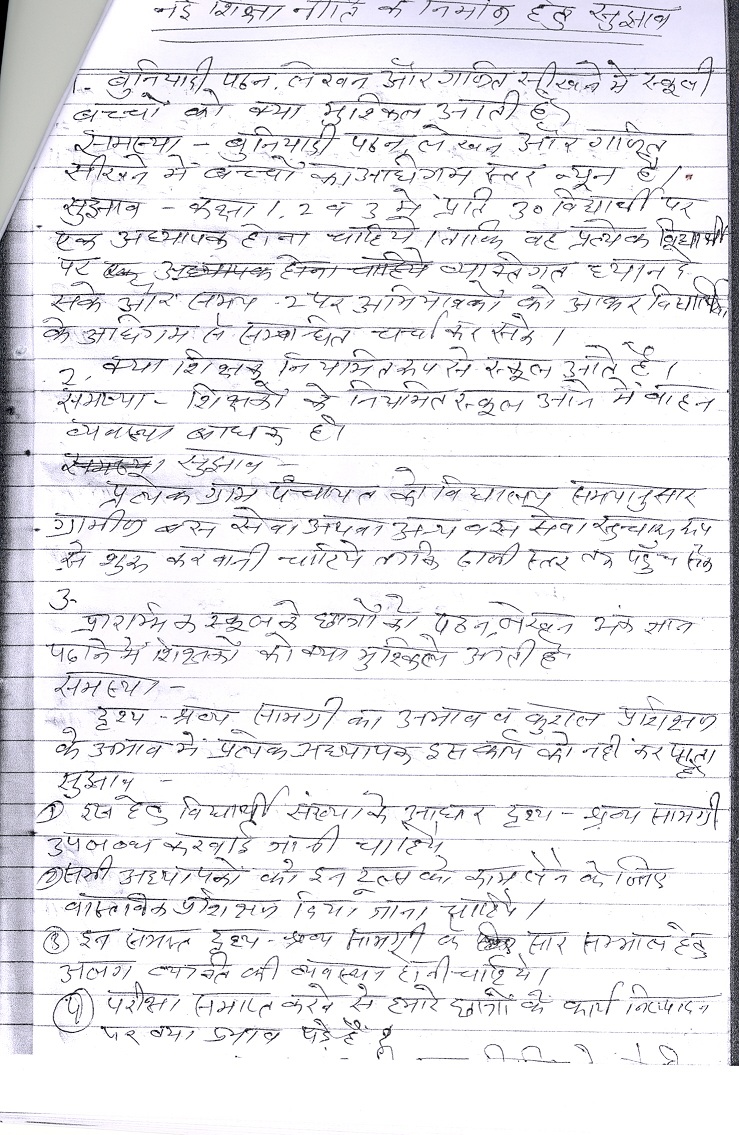 नई शिक्षा नीति के निर्माण हेतु सुझाव
1. बुनियादी पठन, लेखन और गणित सीखने में स्कूली
बच्चों को क्या मुश्किल आती है?
समस्या – बुनियादी पठन, लेखन और गणित
सीखने में बच्चों का अधिगम स्तर न्यून है।
सुझाव – कक्षा 1, 2 व 3 में प्रति 30 विद्यार्थी पर
एक अध्यापक होना चाहिये। ताकि वह प्रत्येक विद्यार्थी
पर एक अध्यापक होना चाहिये व्यक्तिगत ध्यान दे
सके और समय-2 पर अभिभावकों को आकर विद्यार्थी
के अधिगम से सम्बन्धित चर्चा कर सके।
2. क्या शिक्षक नियमित रूप से स्कूल आते हैं।
समस्या – शिक्षकों के नियमित स्कूल आने में वाहन
व्यवस्था बाधक है।
समस्या सुझाव –
प्रत्येक ग्राम पंचायत को विद्यालय समयानुसार
ग्रामीण बस सेवा अथवा अन्य बस सेवा सुचारू रूप
से शुरू करवानी चाहिये ताकि ढाणी स्तर तक पहुँच सके
3.
प्रारम्भिक स्कूल के छात्रों को पठन, लेखन अंक ज्ञान
पढाने में शिक्षकों को क्या मुश्किले आती है?
समस्या –
दृश्य – श्रव्य सामग्री का अभाव व कुशल प्रशिक्षण
के अभाव में प्रत्येक अध्यापक इस कार्य को नहीं कर पाता
है
सुझाव –
① इस हेतु विद्यार्थी संख्या के आधार दृश्य – श्रव्य सामग्री
उपलब्ध करवाई जानी चाहिये
② सभी अध्यापकों को इन टूल्स को काम लेने के लिए
वास्तविक प्रशिक्षण दिया जाना चाहिये।
③ इन समस्त दृश्य – श्रव्य सामग्री के सार सम्भाल हेतु
अलग व्यक्ति की व्यवस्था होनी चाहिये।
④ परीक्षा समाप्त करने से हमारे छात्रों के कार्य निष्पादन
पर क्या प्रभाव पड़े हैं?